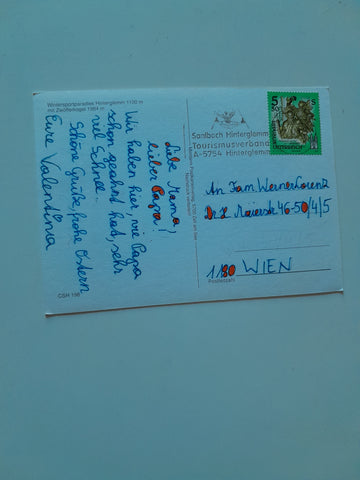 Wintersportparadies Hinterglemm 1100 m
mit Zwölferkogel 1984 m
Liebe Mama,
lieber Papa!
Wir haben hier, wie Papa
schon geahnt hat, sehr
viel Schnee.
Schöne Grüße, frohe Ostern
Eure Valentina
CSH 196
5
500
S
Saalbach Hinterglemm
Tourismusverband
A-5754 Hinterglemm
An Fam. Werner Lorenz
Maierstr. 46-50/4/5
1180 WIEN
Postleitzahl